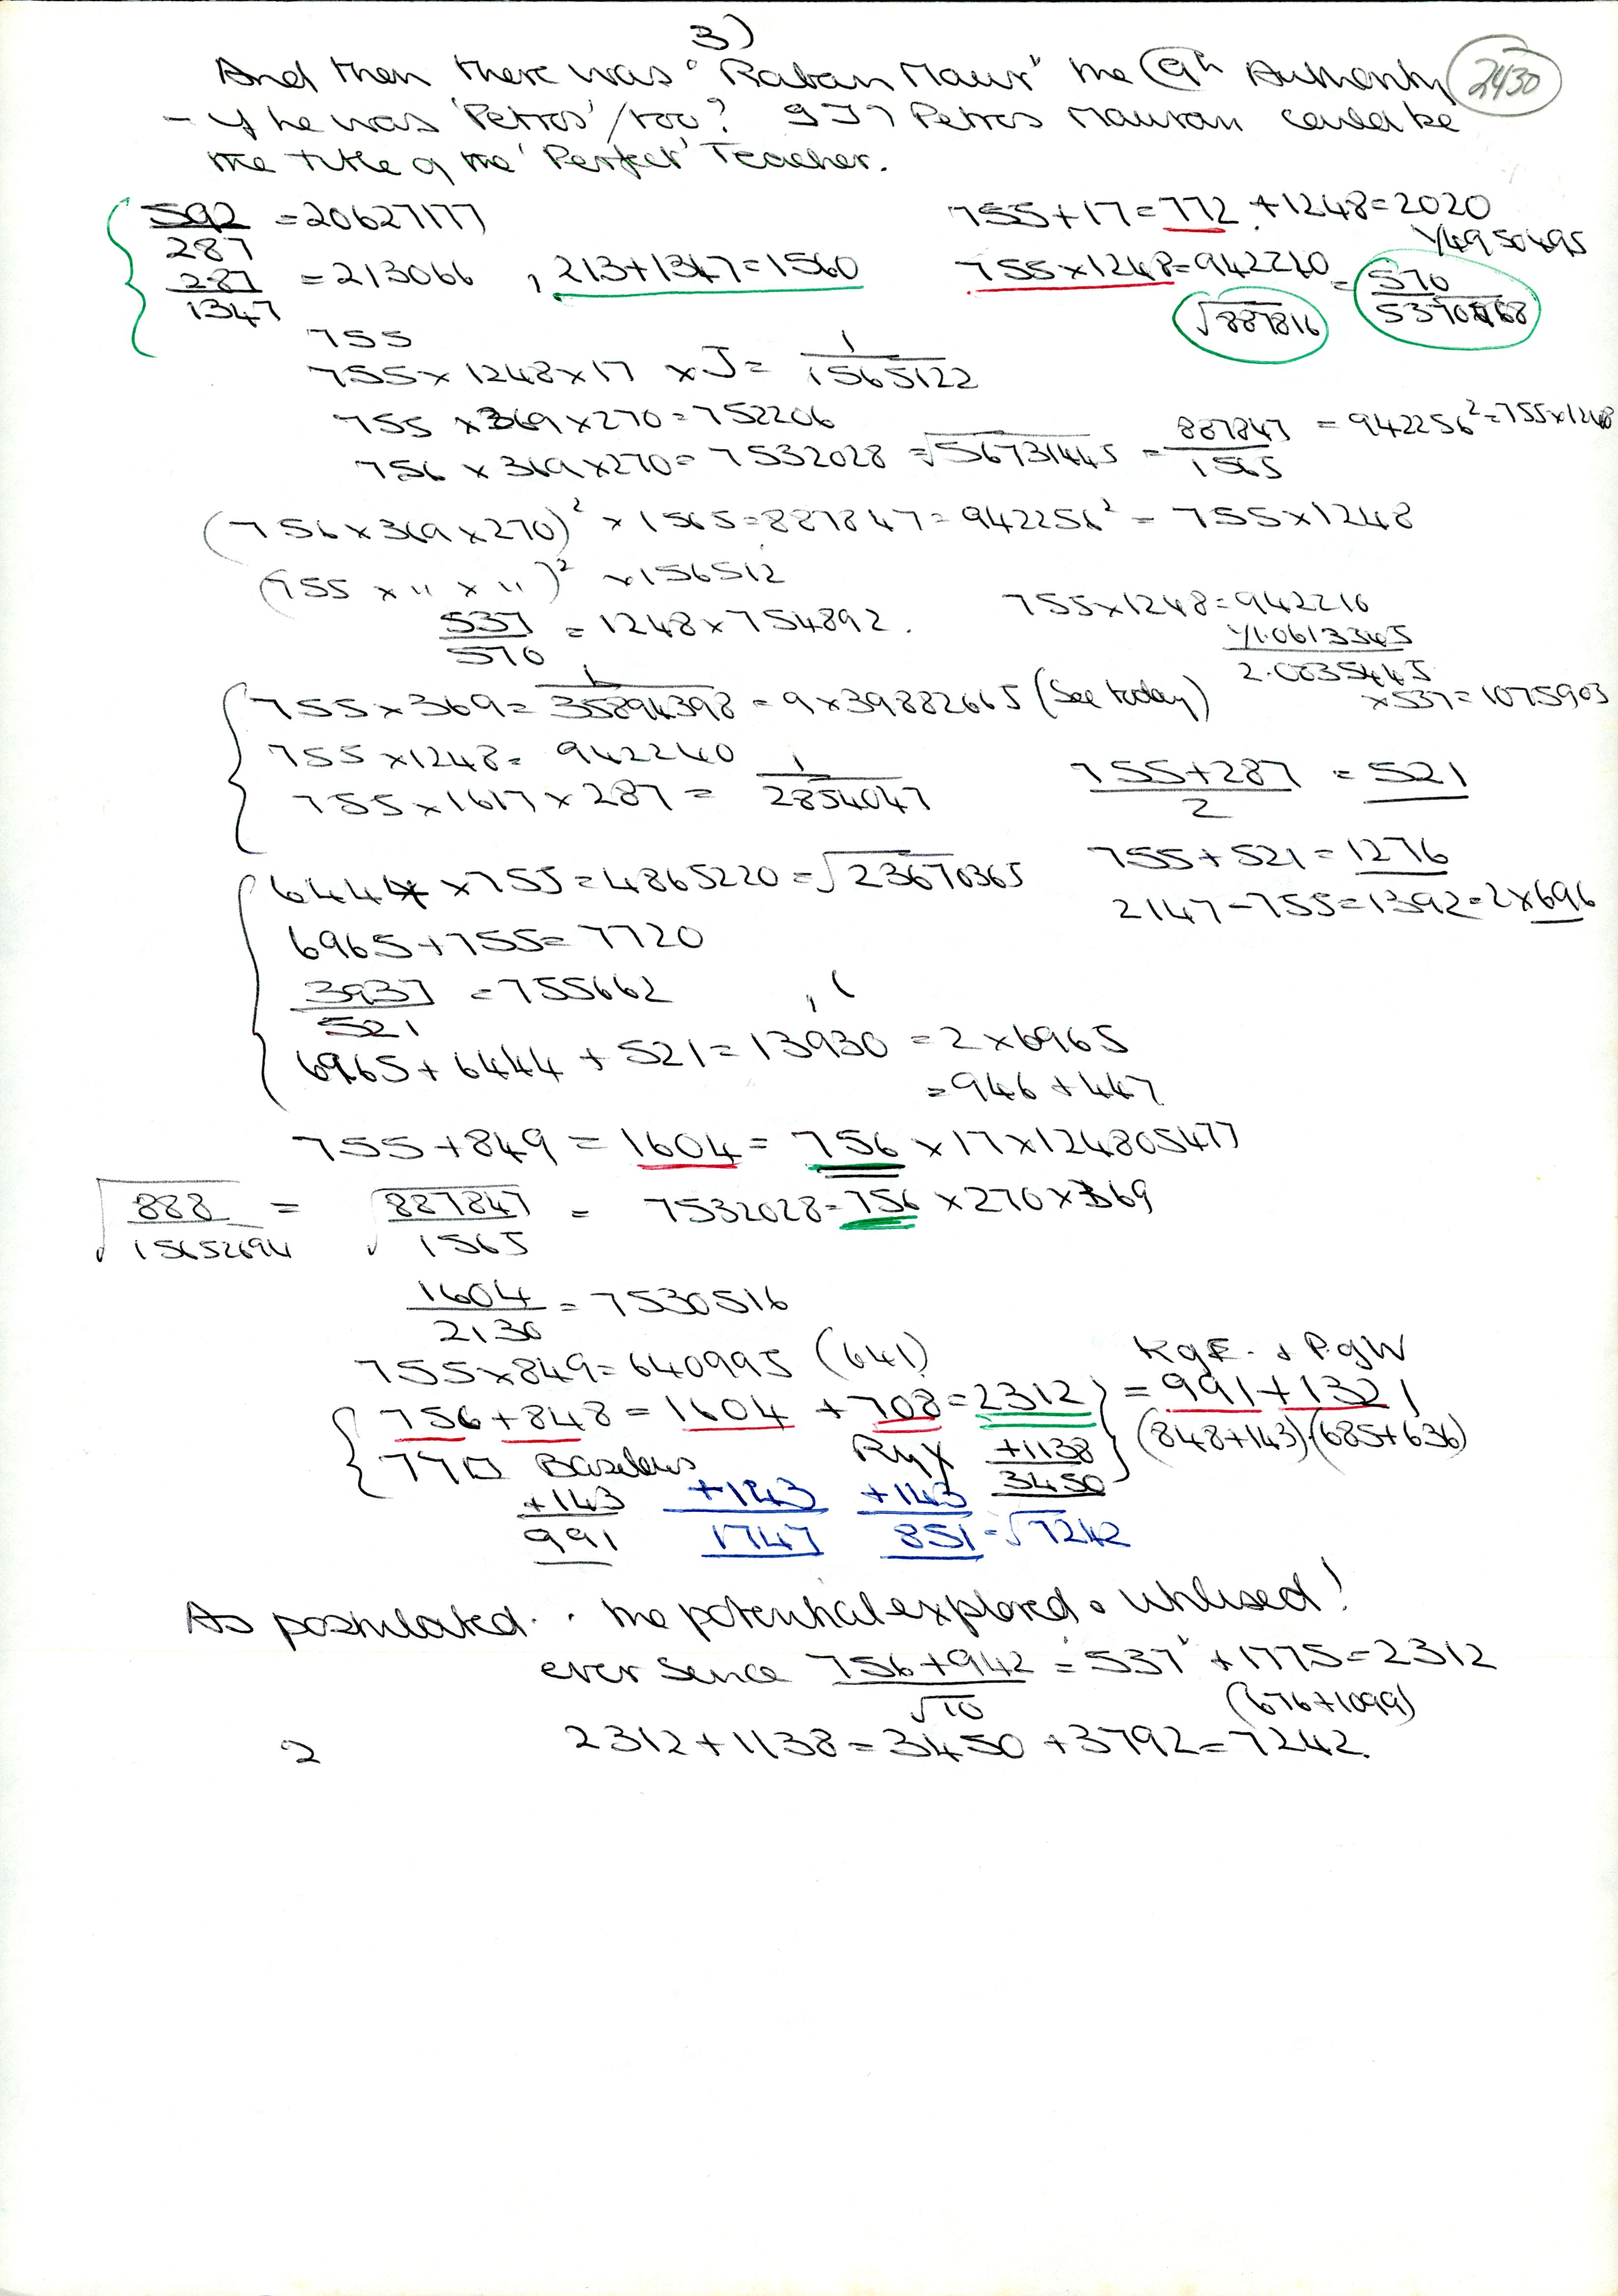 3)
And then there was "Raban Maur" the 9th Authority
2430
- If he was 'Petros' / too? 977 Petros Mauran could be
the title of the 'Perfect' Teacher.
592/287 = 20627177
755+17=772 +1248=2020
1/4950495
287/1347 = 213066 , 213+1347=1560
755×1248=942240 = 570/5370568
√887816
755
755×1248×17 ×J= 1/1565122
755 ×369×270=752206
756 ×369×270=7532028 =√56731445 = 887847/1565 = 942256²=755×1248
(756×369×270)² ×1565=887847=942256² = 755×1248
(755 × " × ")² ×156512
537/570 = 1248×754892.
755×1248=942216
1/1.0613345
2.0035445
×537=1075903
755×369= 1/35894398 = 9×39882665 (See today)
755×1248= 942240
755×1617×287 = 1/2854047
755+287/2 = 521
755+521=1276
2147-755=1392=2×696
6444 ×755=4865220=√23670365
6965+755=7720
3937/521 =755662
6965+6444+521=13930 =2×6965
=946+447
755+849 =1604= 756×17×124805477
√888/15652694 = √887847/1565 = 7532028=756×270×369
1604/2130 = 7530516
755×849=640995 (641)
KgE. & PgW
756+848=1604 +708=2312 =991+1321
(848+143)(685+636)
+1138
3450
+143
991
+143
1747
+143
851=√7242
As postulated.. the potential explored & unused!
ever since 756+942/√10 = '537' +1775=2312
(676+1099)
2312+1138=3450+3792=7242.
2